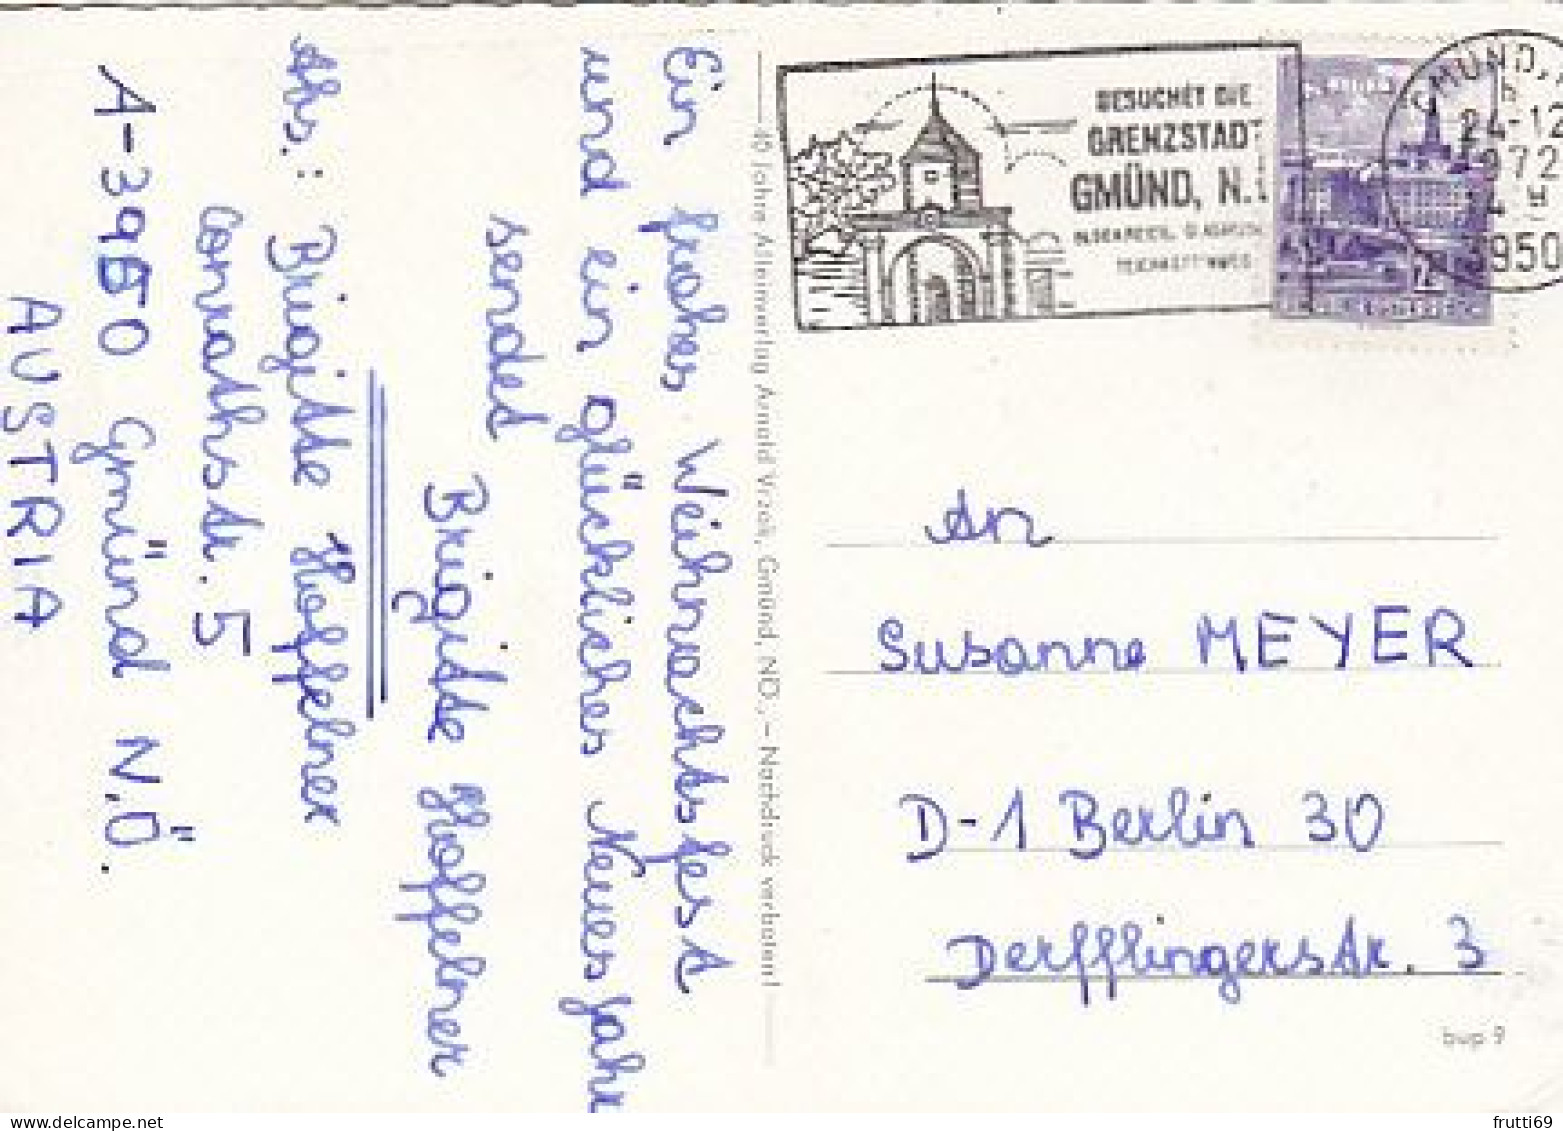 Ein frohes Weihnachtsfest
und ein glückliches Neues Jahr
sendet
Brigitte Hoffelner
Abs.: Brigitte Hoffelner
Conrathstr. 5
A-3950 Gmünd N.Ö.
AUSTRIA
40 Jahre Alleinverlag Arnold Vrzak, Gmünd, NÖ., – Nachdruck verboten!
BESUCHET DIE
GRENZSTADT
GMÜND, N.
GMÜND,
24-12
1972
3950
An
Susanne MEYER
D-1 Berlin 30
Derfflingerstr. 3
bup 9
frutti69